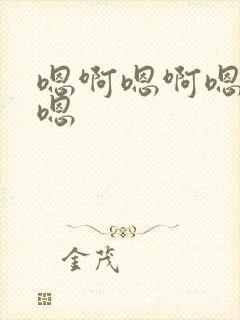 嗯啊嗯啊嗯
嗯
金茂